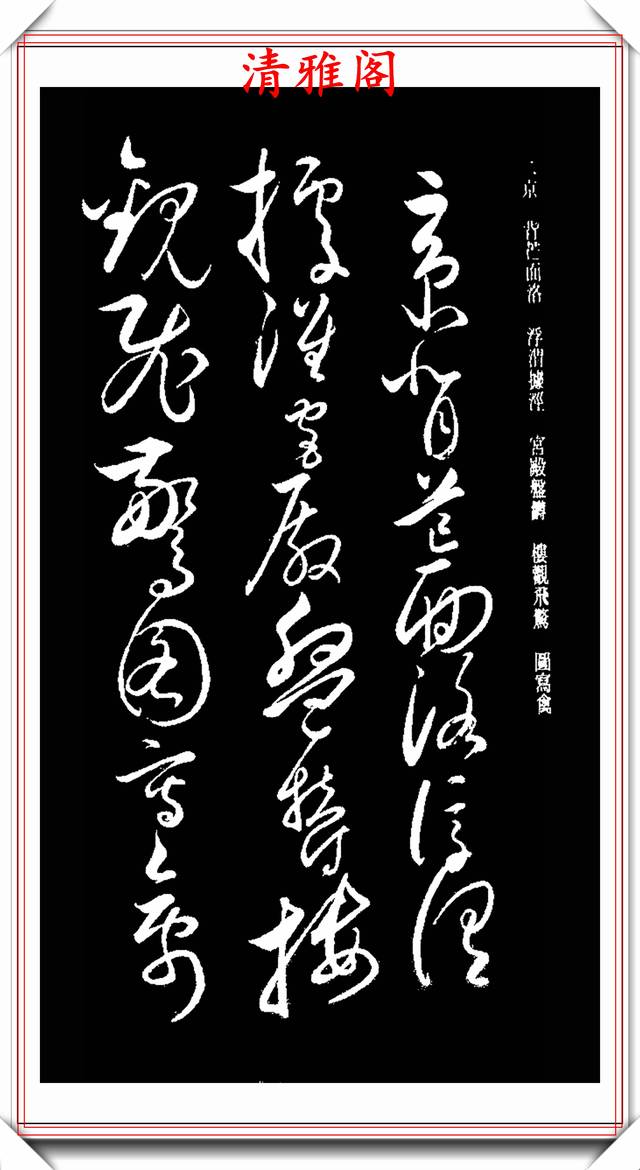 清雅阁
二京 背芒面洛 浮渭據涇 宮殿盤鬱 樓觀飛驚 圖寫禽
京背芒面洛浮渭
據涇宮殿盤鬱樓
觀飛驚圖寫禽